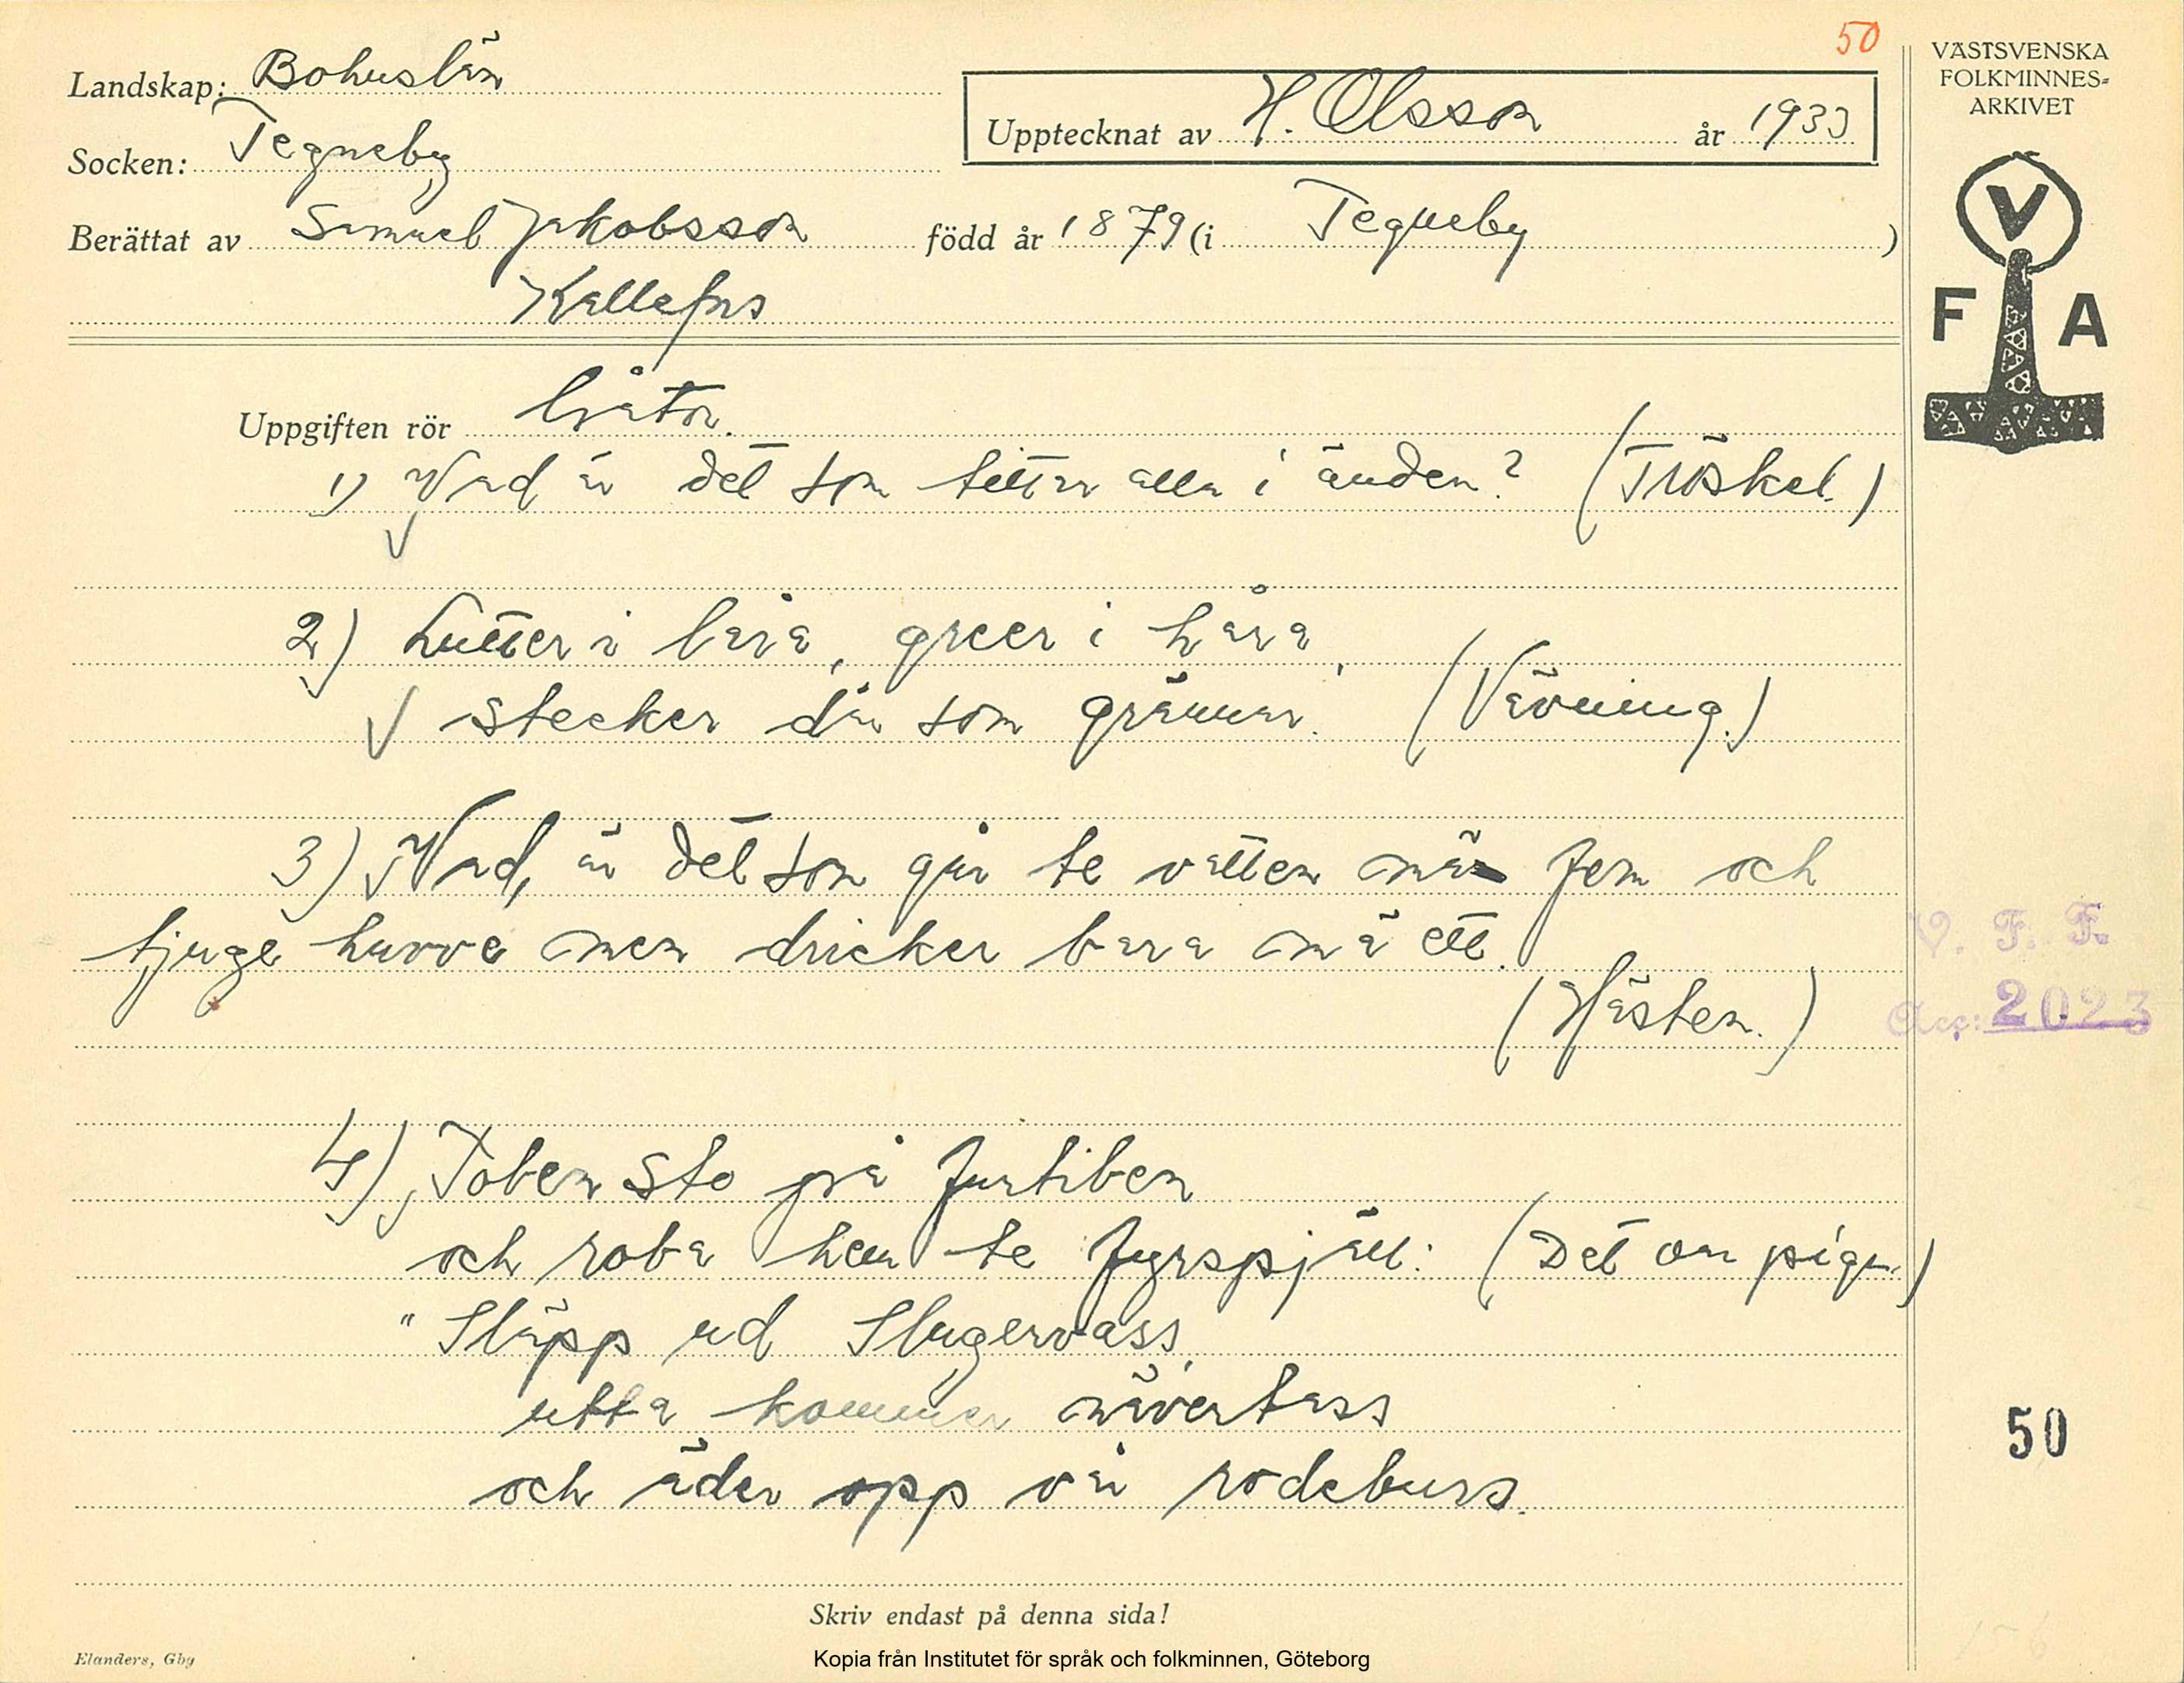 50
VÄSTSVENSKA
FOLKMINNES-
ARKIVET
Landskap: Bohuslän
Upptecknat av H. Olsson år 1933
Socken: Tegneby
Berättat av Samuel Jakobsson född år 1879 (i Tegneby)
V
F A
Uppgiften rör Gåtor.
1) Vad är det som tittar alla i änden? (Tröskel.)
2) Lutter i låra, greer i håra,
stecker där som grännar. (Vävning.)
3) Vad är det som går te vatten mä fem och
tjuge huvve men dricker bara mä ett.
(Hästen.)
V. F. F.
Acc: 2023
4) Toben sto på
och roba hem te Fyrspjäll: (Det var pigan)
"Släpp ud Slugervass,
utta kommer nävertass
och äder opp vår rodeburs.
50
Skriv endast på denna sida!
Elanders, Gbg
Kopia från Institutet för språk och folkminnen, Göteborg